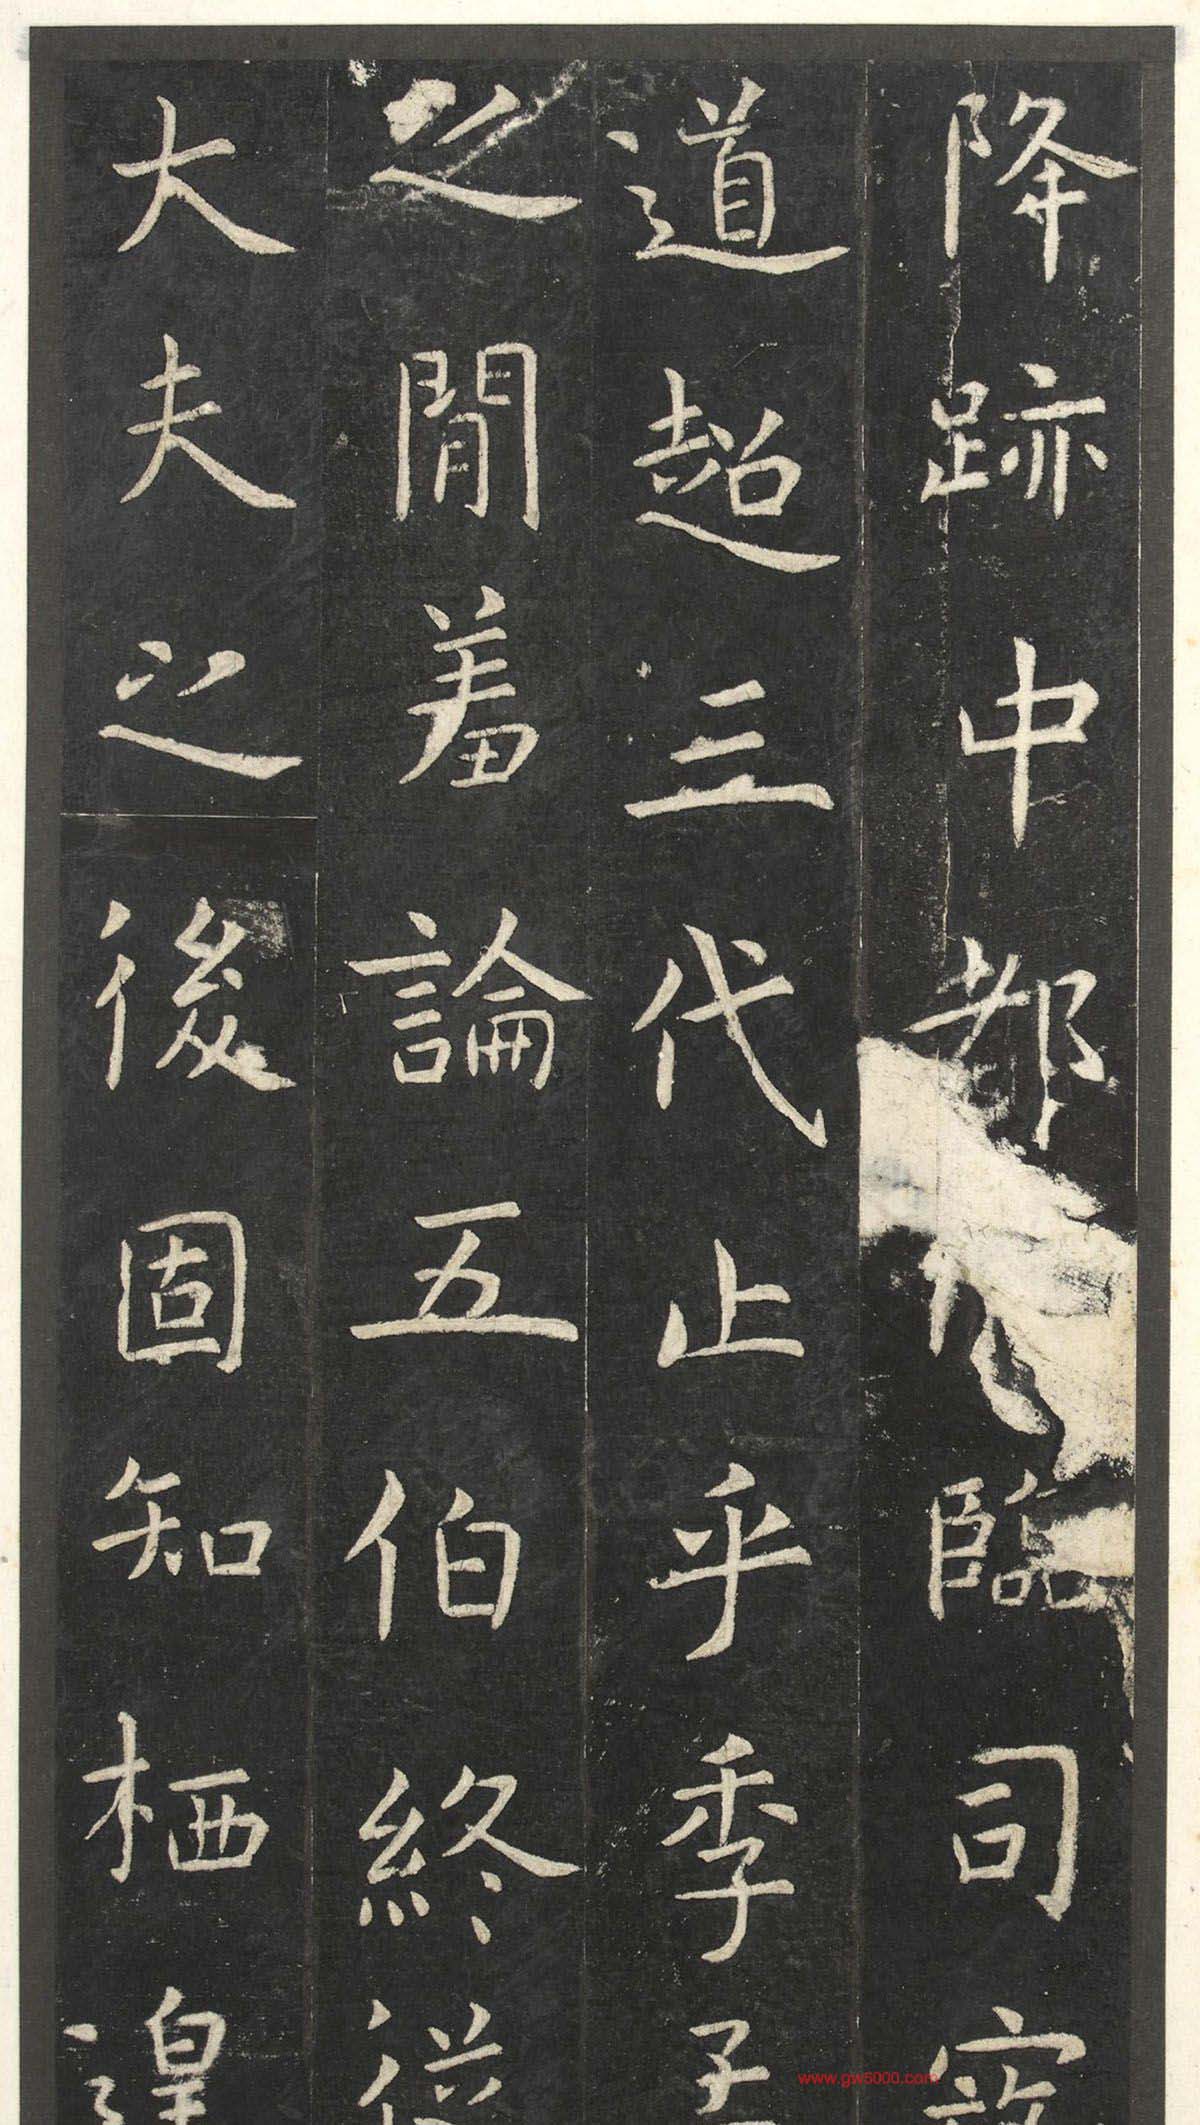 降跡中都臨司寇
道超三代止乎季孟
之閒羞論五伯終從
大夫之後固知栖遑
www.gw5000.com